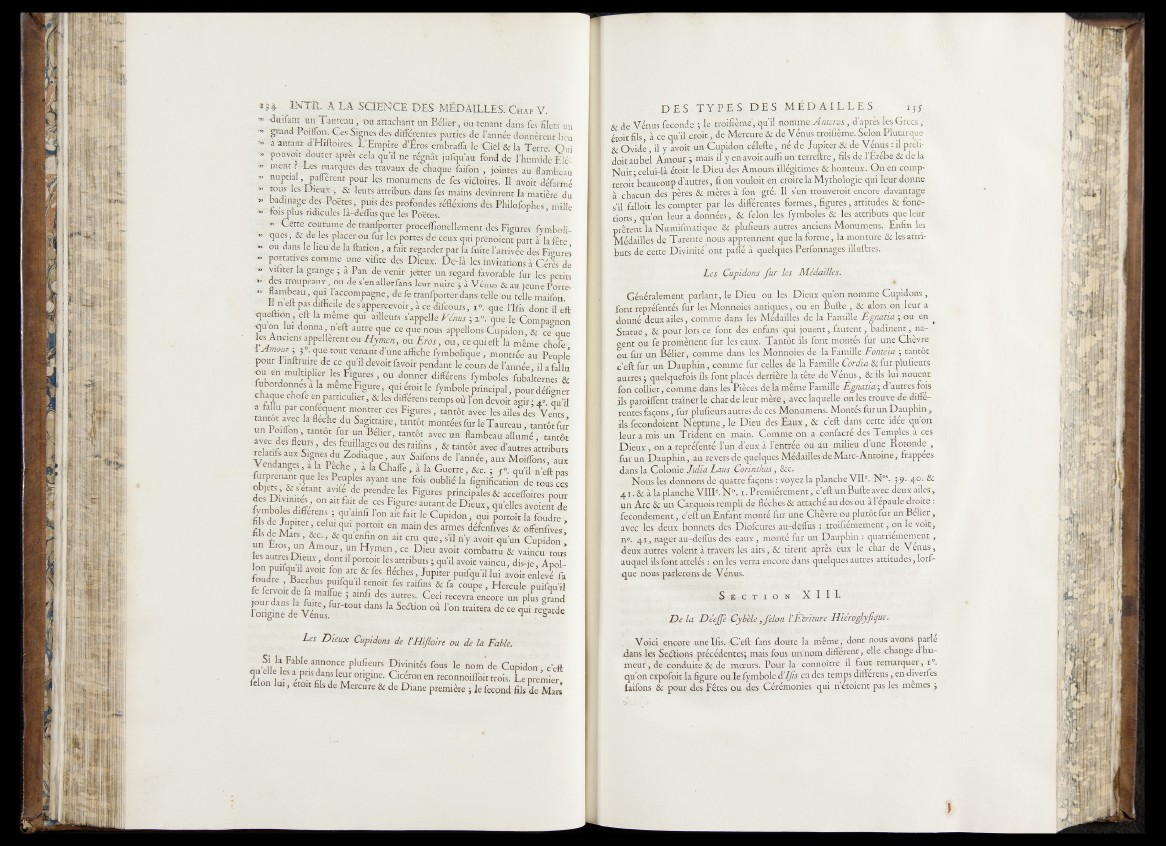 134 INTR. A LA SCIENCE DES MÉDAILLES. CHAP V.
» duiſant un Taureau, ou attachant un Bélier, ou tenant dans ſes filets un
» grand Poiſſon. Ces Signes des différentes parties de l'année donnèrent lieu
» à autant d'Hiſtoires. L'Empire d'Éros embraſſa le Ciél & la Terre. Qui
» pouvoit douter après cela qu'il ne régnât juſqu'au fond de l'humide Elé-
» ment ? Les marques des travaux de chaque ſaiſon, jointes au flambeau
» nuptial, paſſèrent pour les monumens de ſes victoires. Il avoit déſarmé
» tous les Dieux, & leurs attributs dans ſes mains devinrent la matière du
» badinage des Poëtes, puis des profondes réfléxions des Philoſophes, mille
» fois plus ridicules là-deſſus que les Poëtes.
» Cette coutume de tranſporter proceſſionellement des Figures ſymboli-
» ques, & de les placer ou ſur les portes de ceux qui prenoient part à la fête,
» ou dans le lieu de la ſtation, a fait regarder par la ſuite l'arrivée des Figures
» portatives comme une viſite des Dieux. De-là les invitations à Cérès de
» viſiter la grange ; à Pan de venir jetter un regard favorable ſur les petits
» des troupeaux, ou de s'en aller ſans leur nuire ; à Vénus & au jeune Porte-
» flambeau, qui l'accompagne, de ſe tranſporter dans telle ou telle maiſon.
Il n'eſt pas difficile de s'appercevoir, à ce diſcours, 1°. que l'Iſis dont il eſt
queſtion, eſt la même qui ailleurs s'appelle Vénus ; 2°. que le Compagnon
qu'on lui donna, n'eſt autre que ce que nous appellons Cupidon, & ce que
les Anciens appellèrent ou Hymen, ou Eros, ou, ce qui eſt la même choſe,
l'Amour ; 3°. que tout venant d'une affiche ſymbolique, montrée au Peuple
pour l'inſtruire de ce qu'il devoit ſavoir pendant le cours de l'année, il a fallu
ou en multiplier les Figures, ou donner différens ſymboles ſubalternes &
ſubordonnés à la même Figure, qui étoit le ſymbole principal, pour déſigner
chaque choſe en particulier, & les différens temps où l'on devoit agir ; 4°. qu'il
a fallu par conſéquent montrer ces Figures, tantôt avec les ailes des Vents,
tantôt avec la fléche du Sagittaire, tantôt montées ſur le Taureau, tantôt ſur
un Poiſſon, tantôt ſur un Bélier, tantôt avec un flambeau allumé, tantôt
avec des fleurs, des feuillages ou des raiſins, & tantôt avec d'autres attributs
relatifs aux Signes du Zodiaque, aux Saiſons de l'année, aux Moiſſons, aux
Vendanges, à la Pêche, à la Chaſſe, à la Guerre, &c. ; 5°. qu'il n'eſt pas
ſurprenant que les Peuples ayant une fois oublié la ſignification de tous ces
objets, & s'étant aviſé de prendre les Figures principales & acceſſoires pour
des Divinités, on ait fait de ces Figures autant de Dieux, qu'elles avoient de
ſymboles différens ; qu'ainſi l'on ait fait le Cupidon, qui portoit la foudre,
fils de Jupiter, celui qui portoit en main des armes défenſives & offenſives,
fils de Mars, &c., & qu'enfin on ait cru que, s'il n'y avoit qu'un Cupidon,
un Eros, un Amour, un Hymen, ce Dieu avoit combattu & vaincu tous
les autres Dieux, dont il portoit les attributs ; qu'il avoit vaincu, dis-je, Apol-
lon puiſqu'il avoit ſon arc & ſes fléches, Jupiter puiſqu'il lui avoit enlevé ſa
foudre, Bacchus puiſqu'il tenoit ſes raiſins & ſa coupe, Hercule puiſqu'il
ſe ſervoit de ſa maſſue ; ainſi des autres. Ceci recevra encore un plus grand
jour dans la ſuite, ſur-tout dans la Section où l'on traitera de ce qui regarde
l'origine de Vénus.
Les Dieux Cupidons de l'Hiſtoire ou de la Fable.
Si la Fable annonce pluſieurs Divinités ſous le nom de Cupidon, c'eſt
qu'elle les a pris dans leur origine. Cicéron en reconnoiſſoit trois. Le premier,
ſelon lui, étoit fils de Mercure & de Diane première ; le ſecond fils de Mars
DES TYPES DES MÉDAILLES 135
& de Vénus ſeconde ; le troiſième, qu'il nomme Anteros, d'après les Grecs,
étoit fils, à ce qu'il croit, de Mercure & de Vénus troiſième. Selon Plutarque
& Ovide, il y avoit un Cupidon céleſte, né de Jupiter & de Vénus : il préſi-
doit au bel Amour ; mais il y en avoit auſſi un terreſtre, fils de l'Erébe & de la
Nuit ; celui-là étoit le Dieu des Amours illégitimes & honteux. On en comp-
teroit beaucoup d'autres, ſi on vouloit en croire la Mythologie qui leur donne
à chacun des pères & mères à ſon gré. Il s'en trouveroit encore davantage
s'il falloit les compter par les différentes formes, figures, attitudes & fonc-
tions, qu'on leur a données, & ſelon les ſymboles & les attributs que leur
prêtent la Numiſmatique & pluſieurs autres anciens Monumens. Enfin les
Médailles de Tarente nous apprennent que la forme, la monture & les attri-
buts de cette Divinité ont paſſé à quelques Perſonnages illuſtres.
Les Cupidons ſur les Médailles.
Généralement parlant, le Dieu ou les Dieux qu'on nomme Cupidons,
ſont repréſentés ſur les Monnoies antiques, ou en Buſte, & alors on leur a
donné deux ailes, comme dans les Médailles de la Famille Egnatia ; ou en
Statue, & pour lors ce ſont des enfans qui jouent, ſautent, badinent, na-
gent ou ſe promènent ſur les eaux. Tantôt ils ſont montés ſur une Chèvre
ou ſur un Bélier, comme dans les Monnoies de la Famille Fonteia ; tantôt
c'eſt ſur un Dauphin, comme ſur celles de la Famille Cordia & ſur pluſieurs
autres ; quelquefois ils ſont placés derrière la tête de Vénus, & ils lui nouent
ſon collier, comme dans les Pièces de la même Famille Egnatia ; d'autres fois
ils paroiſſent traîner le char de leur mère, avec laquelle on les trouve de diffé-
rentes façons, ſur pluſieurs autres de ces Monumens. Montés ſur un Dauphin,
ils ſecondoient Neptune, le Dieu des Eaux, & c'eſt dans cette idée qu'on
leur a mis un Trident en main. Comme on a conſacré des Temples à ces
Dieux, on a repréſenté l'un d'eux à l'entrée ou au milieu d'une Rotonde,
ſur un Dauphin, au revers de quelques Médailles de Marc-Antoine, frappées
dans la Colonie Julia Laus Corinthus, &c.
Nous les donnons de quatre façons : voyez la planche VIIe. Nos. 39. 40. &
41. & à la planche VIIIe. N°. 1. Premiérement, c'eſt un Buſte avec deux ailes,
un Arc & un Carquois rempli de fléches & attaché au dos ou à l'épaule droite :
ſecondement, c'eſt un Enfant monté ſur une Chèvre ou plutôt ſur un Bélier,
avec les deux bonnets des Dioſcures au-deſſus : troiſiémement, on le voit,
n°. 41, nager au-deſſus des eaux, monté ſur un Dauphin : quatriémement,
deux autres volent à travers les airs, & tirent après eux le char de Vénus,
auquel ils ſont attelés : on les verra encore dans quelques autres attitudes, lorſ-
que nous parlerons de Vénus.
SECTION XIII.
De la Déeſſe Cybèle, ſelon l'Écriture Hiéroglyfique.
Voici encore une Iſis. C'eſt ſans doute la même, dont nous avons parlé
dans les Sections précédentes ; mais ſous un nom différent, elle change d'hu-
meur, de conduite & de mœurs. Pour la connoître il faut remarquer, 1°.
qu'on expoſoit la figure ou le ſymbole d'Iſis en des temps différens, en diverſes
ſaiſons & pour des Fêtes ou des Cérémonies qui n'étoient pas les mêmes ;